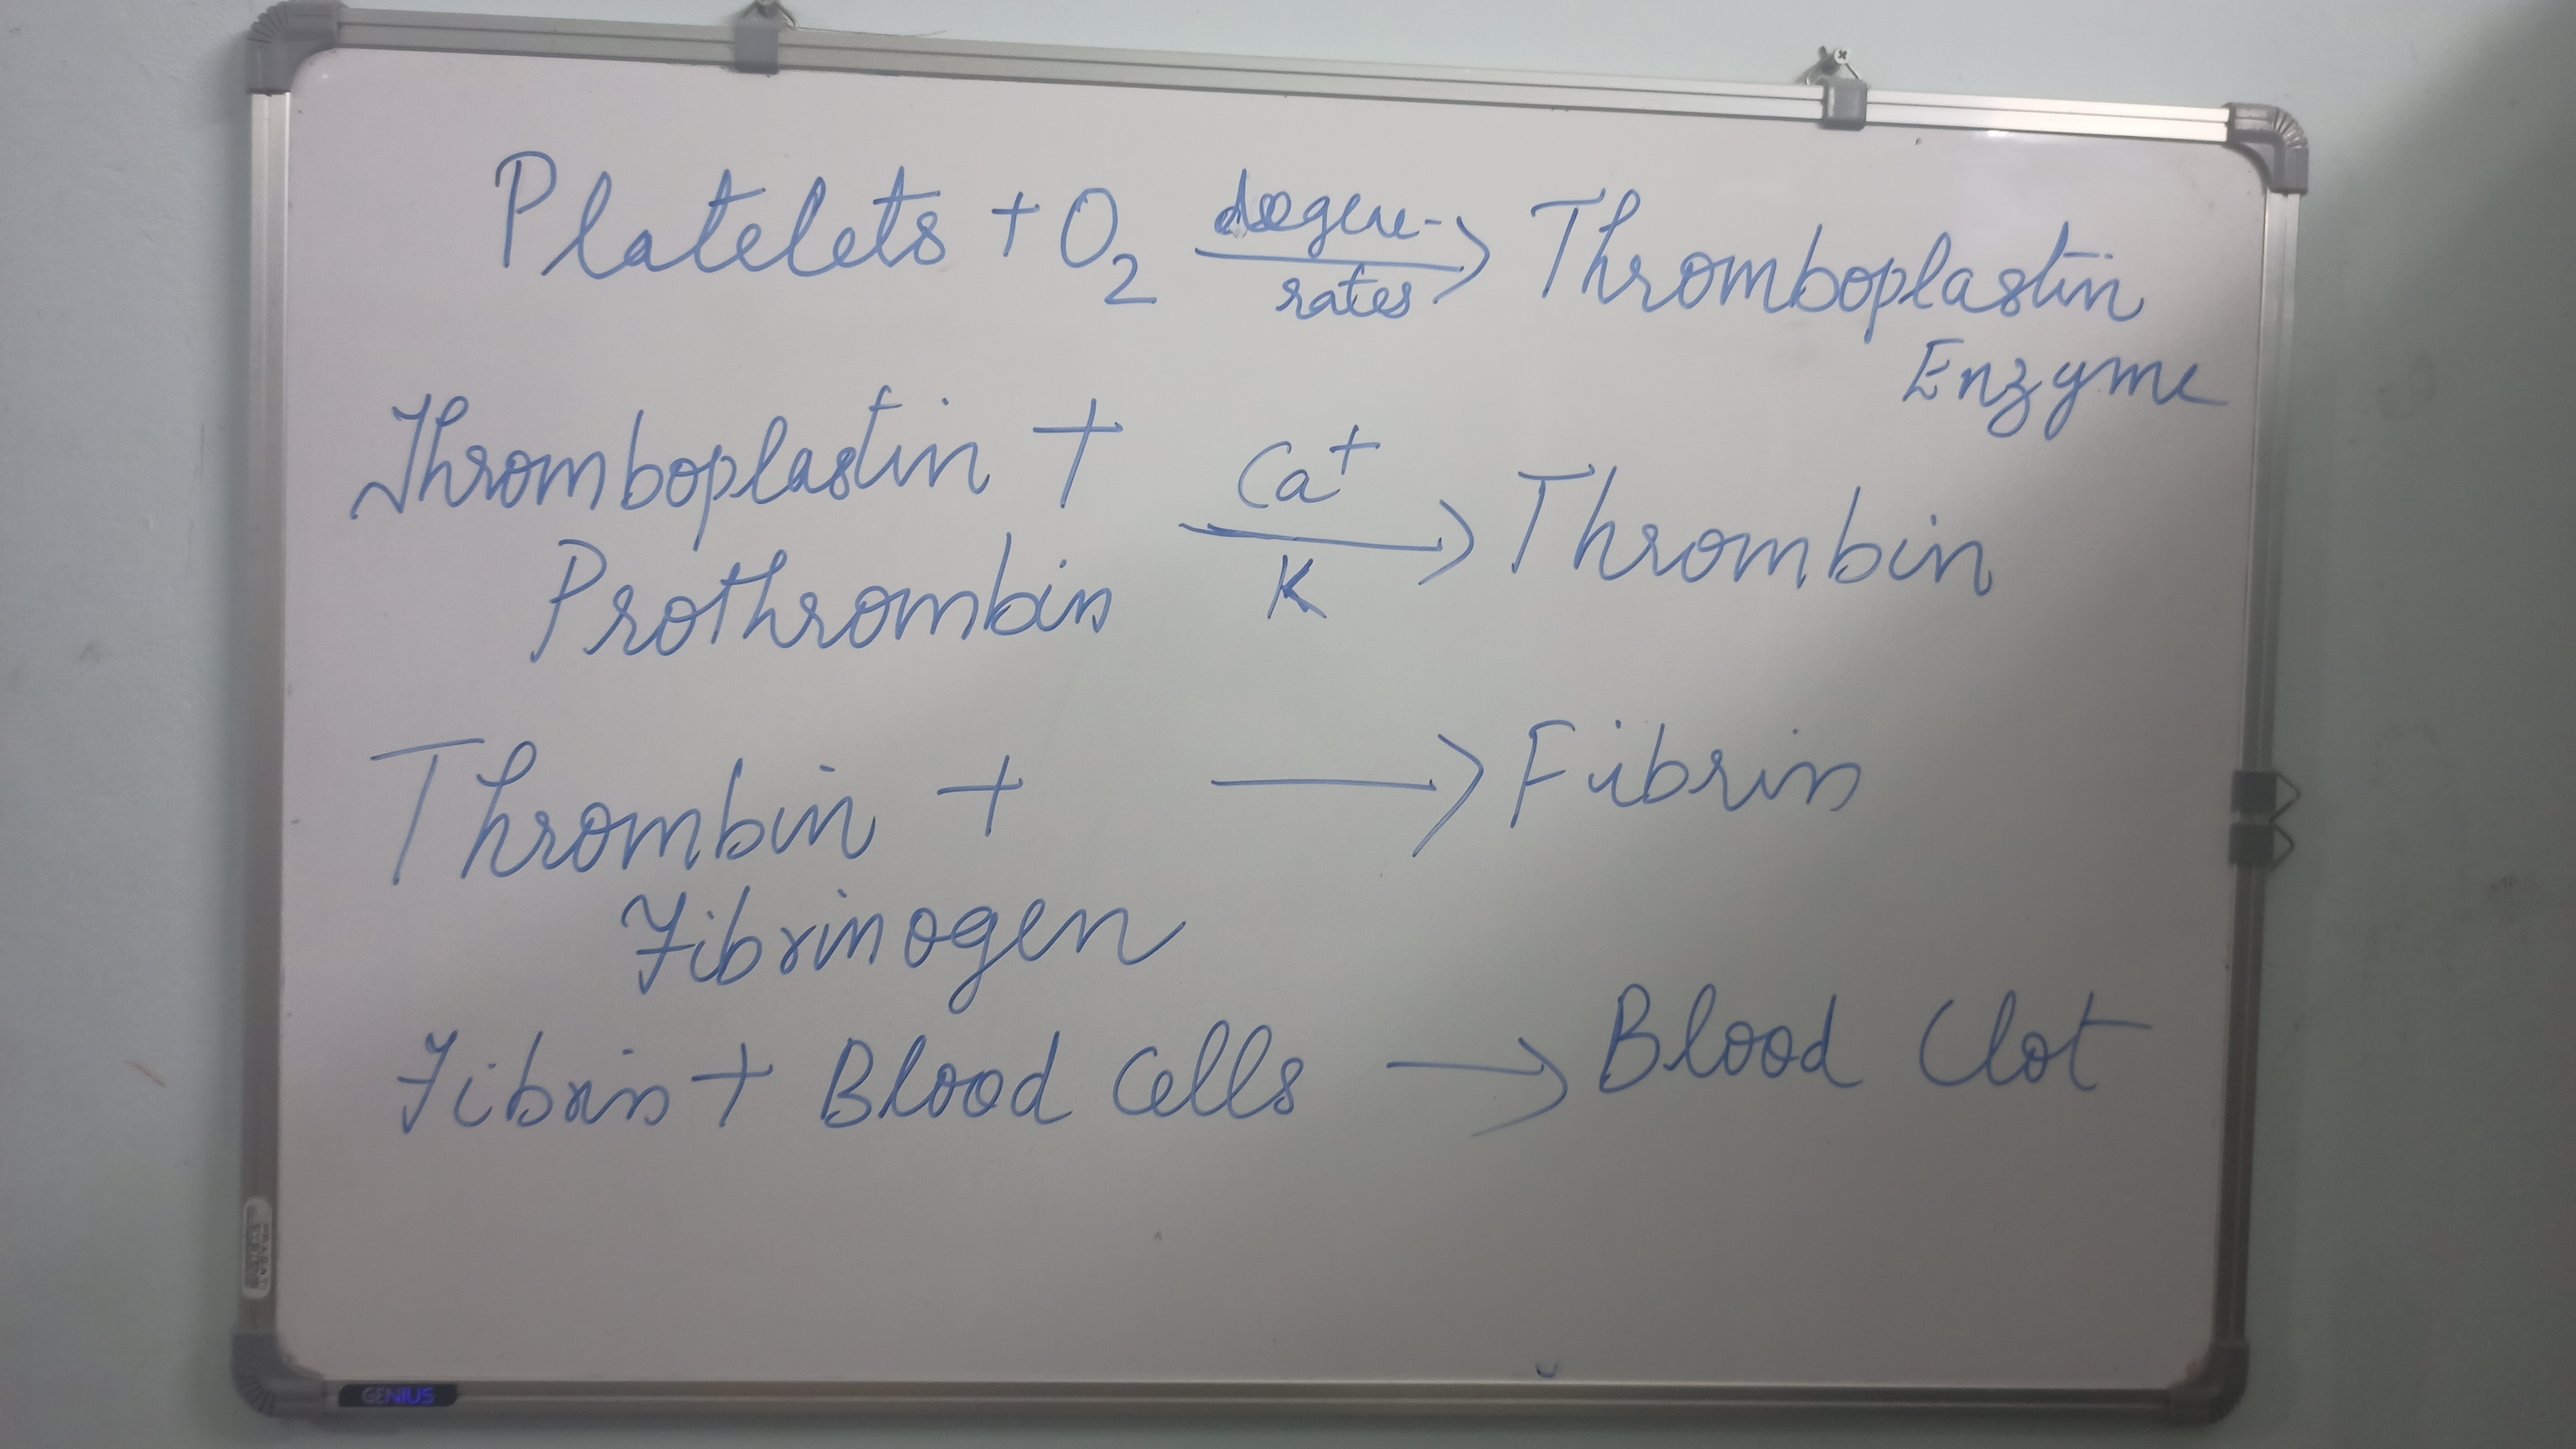 Platelets + O₂ degene-rates → Thromboplastin
Enzyme
Thromboplastin +
Ca⁺
→ Thrombin
K
Prothrombin
Thrombin + → Fibrin
Fibrinogen
Fibrin + Blood Cells → Blood Clot
GENIUS